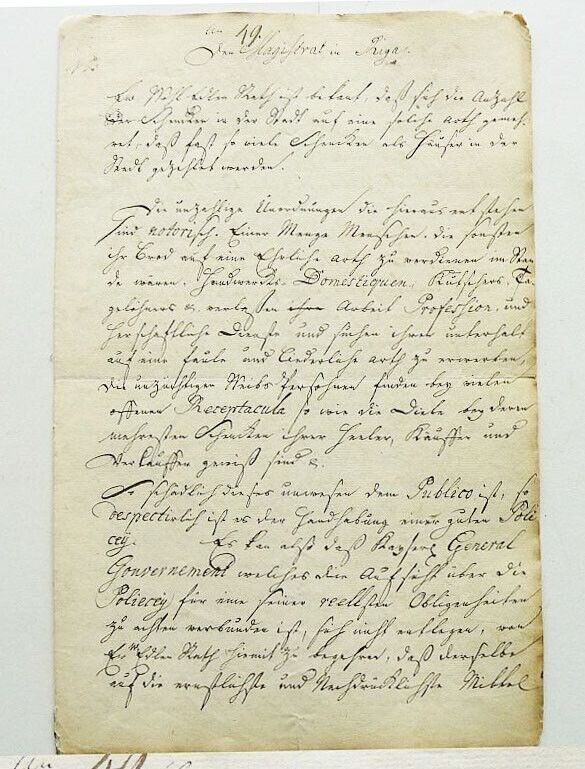 An 49.
Den Magistrat in Riga.
Ew. Wohl Edlen Rath ist bekant, daß sich die Anzahl
der Schencken in der Stadt auf eine solche Arth gemeh-
ret, daß fast so viele Schencken als Häuser in der
Stadt gezehlet werden.
Die unzählige Unordnungen die hieraus entstehen
sind notorisch. Einer Menge Menschen, die sonsten
ihr Brod auf eine Ehrliche Arth zu verdienen im Stan-
de wären, Handwercks- Domestiquen, Kutschers, Ta-
gelöhners &. verlaßen ihre Arbeit Profession, und
herschafftliche Dienste und suchen ihren unterhalt
auf eine faule und liederliche Arth zu erwerben,
die unzüchtigen Weibs Persohnen finden bey vielen
offenen Receptacula so wie die Diebe bey denen
mehresten Schencken ihrer Heeler, Käuffer und
Verkäuffer gewiß sind &.
So schädlich dieses unwesen dem Publico ist, so
despectirlich ist es der Handhabung einer guten Poli
cey. Es kan alß daß Kayserl. General
Gouvernement welches die Aufsicht über die
Policey für eine seiner reellsten Obliegenheiten
zu achten verbunden ist, sich nicht entlegen, von
Ew. Edlen Rath hiemit zu begehren, daß derselbe
auf die ernstlichste und Nachdrücklichste Mittel